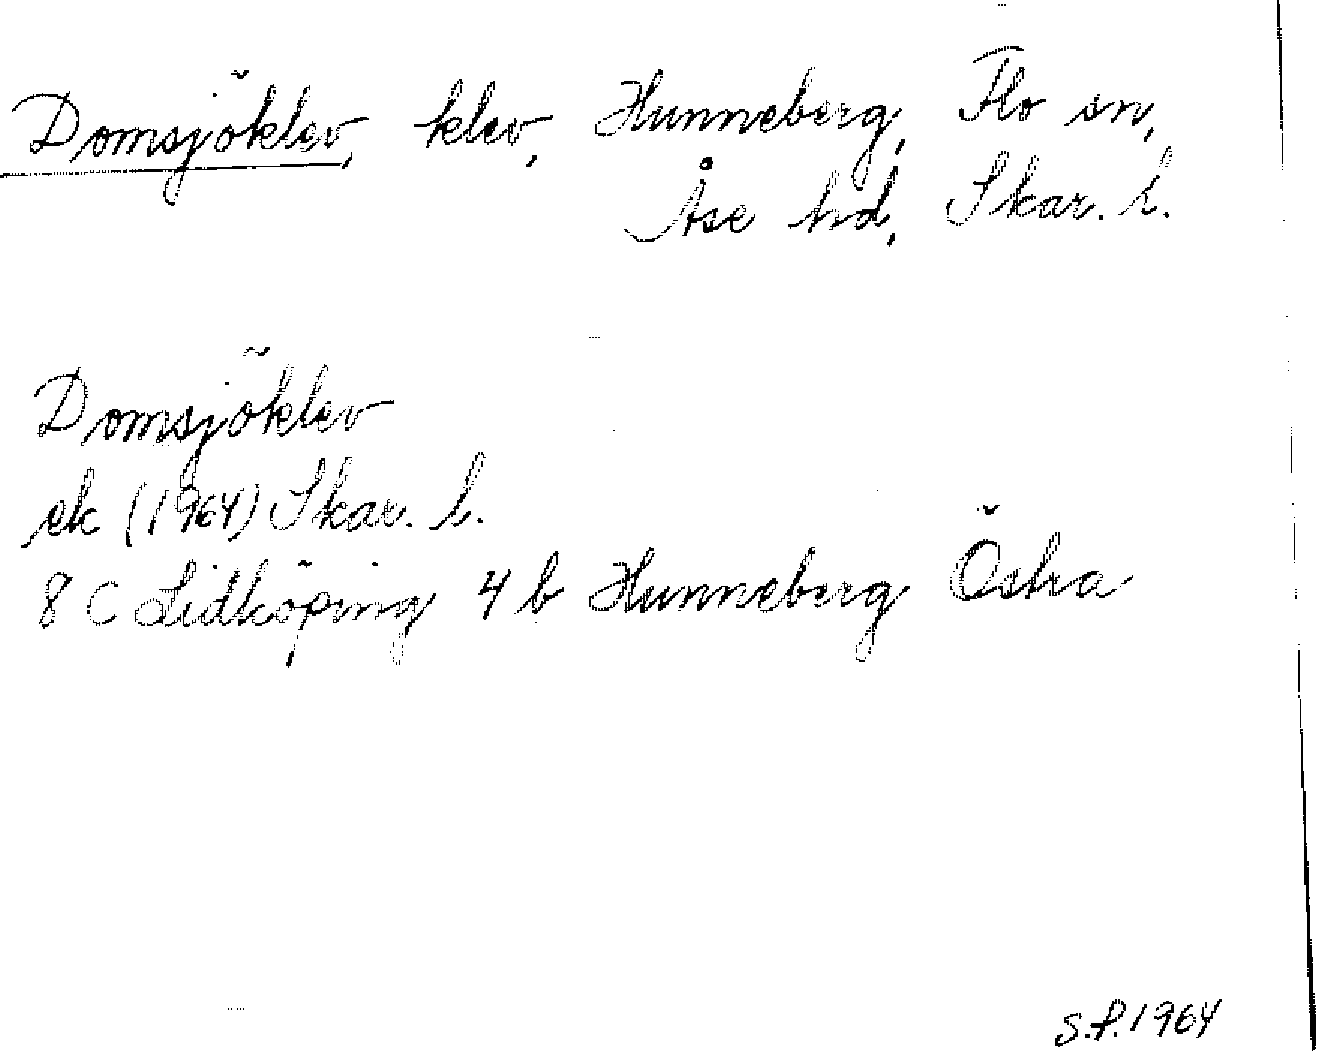 Domsjöklev, klev, Hunneberg, Flo sn,
Åse hd, Skar. l.
Domsjöklev
ek (1964) Skar. l.
8 C Lidköping 4 b Hunneberg Östra
S.P. 1964